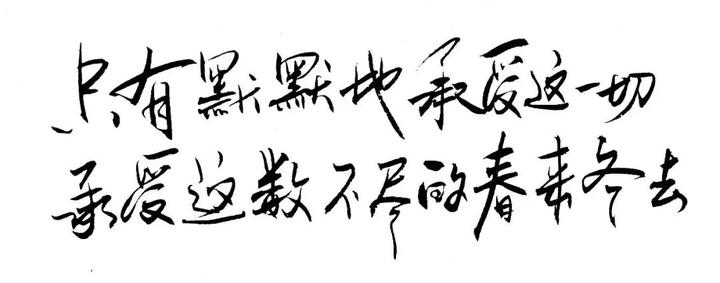 只有默默地承受这一切
承受这数不尽的春来冬去